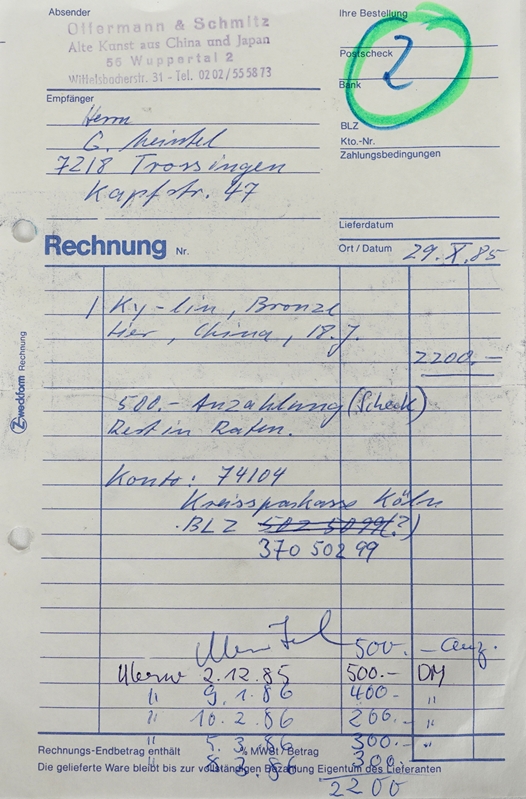 Absender
Olfermann & Schmitz
Alte Kunst aus China und Japan
56 Wuppertal 2
Wilhelsbacherstr. 31 - Tel. 02 02 / 55 58 73
Ihre Bestellung
2
Postscheck
Bank
BLZ
Kto.-Nr.
Zahlungsbedingungen
Empfänger
Herrn
G.
7218 Trossingen
Kapfstr. 47
Lieferdatum
Rechnung Nr.
Ort / Datum 29. X. 85
1 Ky-lin, Bronze
Tier, China, 18. J.
2200.—
500.- Anzahlung (Scheck)
Rest in Raten.
Konto: 74104
Kreissparkasse Köln
BLZ 502 50 99 (?)
370 502 99
Zweckform Rechnung
500.- Anz.
2.12.85 500.- DM
" 9.1.86 400.- "
" 10.2.86 200.- "
" 5.3.86 300.- "
" 8. .86 300.-
Rechnungs-Endbetrag enthält % MWSt / Betrag
Die gelieferte Ware bleibt bis zur vollständigen Bezahlung Eigentum des Lieferanten
2200